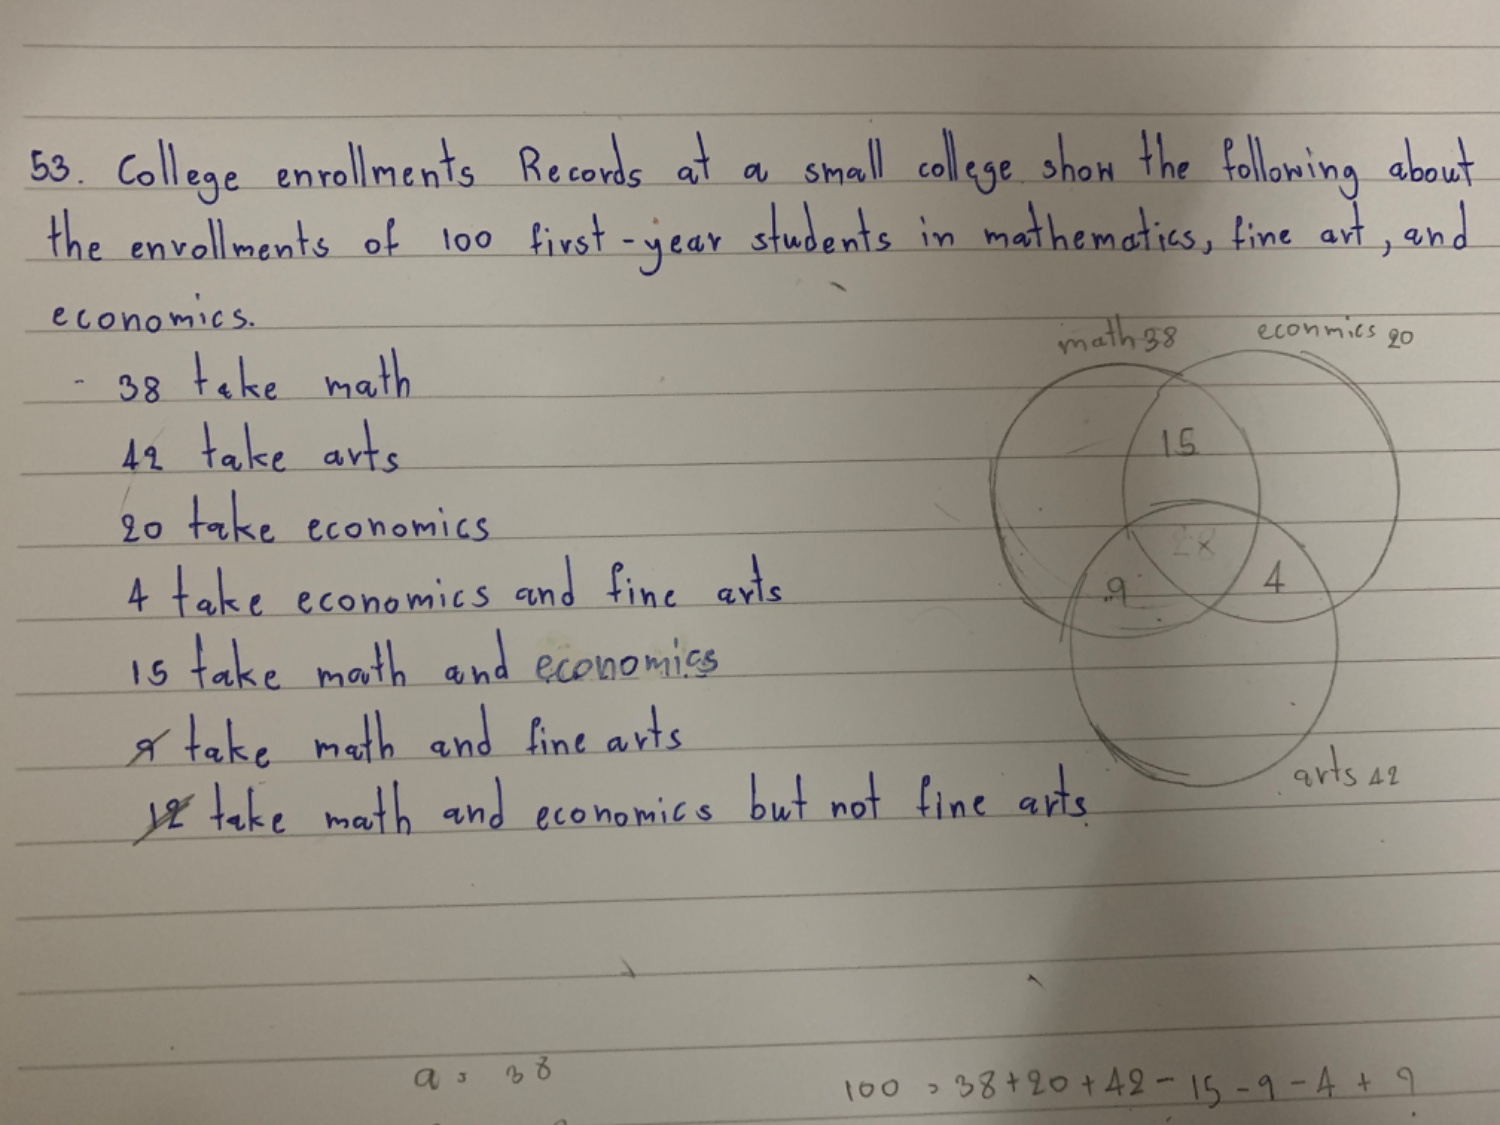 53. College enrollments Records at a small college show the following about
the enrollments of 100 first-year students in mathematics, fine art, and
economics.
math 38
econmics 20
- 38 take math
42 take arts
15
20 take economics
28
9
4
4 take economics and fine arts
15 take math and economics
9 take math and fine arts
arts 42
12 take math and economics but not fine arts.
a = 38
100 = 38+20+42-15-9-4+